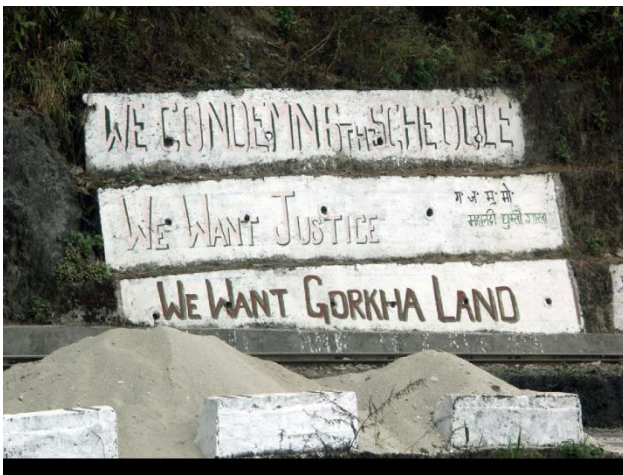 WE CONDEMN 6TH SCHEDULE
WE WANT JUSTICE
ग॰ ज॰ मु॰ मो॰
महानदी
WE WANT GORKHA LAND